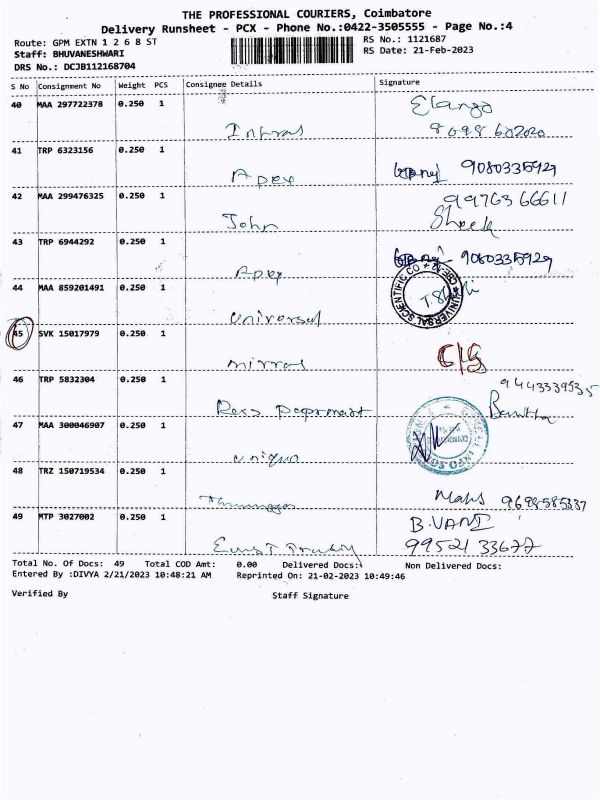 THE PROFESSIONAL COURIERS, Coimbatore
Delivery Runsheet - PCX - Phone No.:0422-3505555 - Page No.:4
Route: GPM EXTN 1 2 6 8 ST
RS No.: 1121687
Staff: BHUVANESHWARI
RS Date: 21-Feb-2023
DRS No.: DCJB112168704
S No Consignment No Weight PCS Consignee Details Signature
40 MAA 297722378 0.250 1 Elango
41 TRP 6323156 0.250 1 9080335929
Apex
42 MAA 299476325 0.250 1 9976366611
John
43 TRP 6944292 0.250 1
Apex
44 MAA 859201491 0.250 1 UNIVERSAL SCIENTIFIC CO
Universal
45 SVK 15017979 0.250 1
mirras
46 TRP 5832304 0.250 1 9443339535
47 MAA 300046907 0.250 1
unique
48 TRZ 150719534 0.250 1
49 MTP 3027002 0.250 1 B.VANI
9952133677
Total No. Of Docs: 49 Total COD Amt: 0.00 Delivered Docs: Non Delivered Docs:
Entered By :DIVYA 2/21/2023 10:48:21 AM Reprinted On: 21-02-2023 10:49:46
Verified By Staff Signature